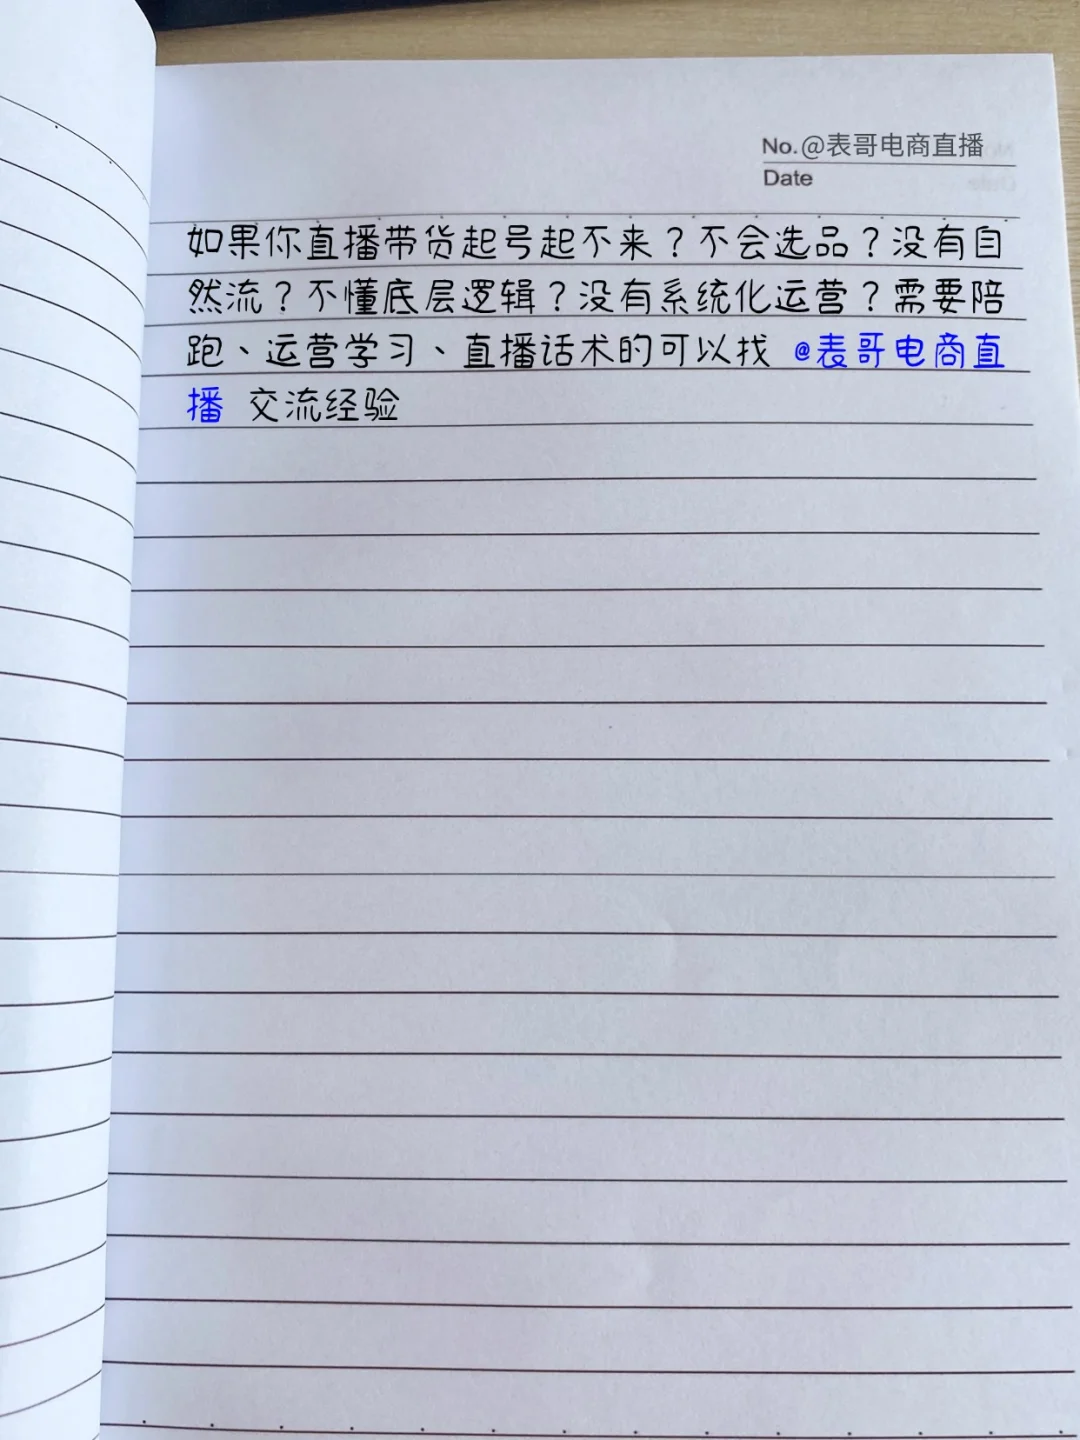 No.@表哥电商直播
Date
如果你直播带货起号起不来？不会选品？没有自
然流？不懂底层逻辑？没有系统化运营？需要陪
跑、运营学习、直播话术的可以找 @表哥电商直
播 交流经验